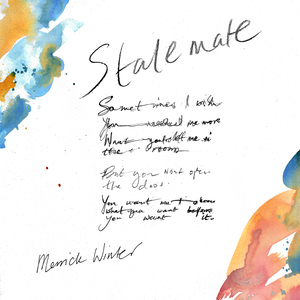 Stalemate
Sometimes I wish
You needed me more
Want you me in
the room
But you want open
the door.
You want me to know
what you want before
you want it.
Merrick Winter